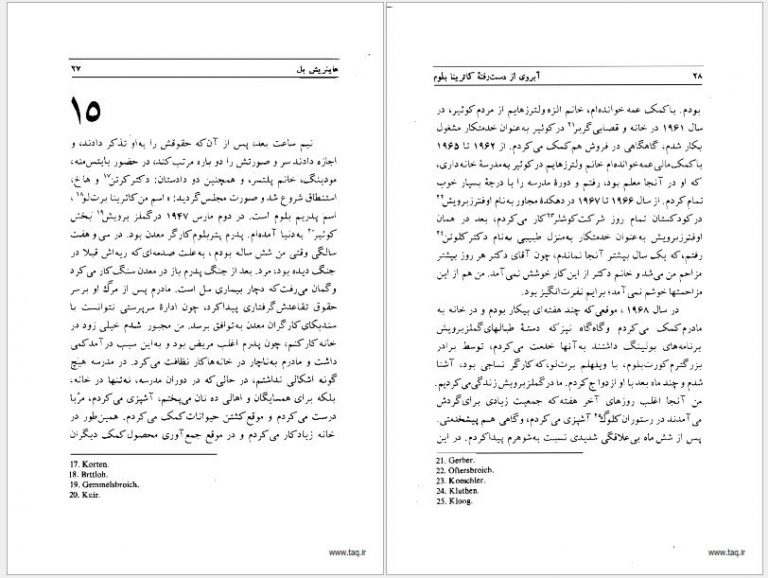 هاینریش بل ۲۷
۱۵
نیم ساعت بعد، پس از آن‌که حقوقش را به‌او تذکر دادند، و
اجازه دادند سر و صورتش را دو باره مرتب‌کند، در حضور بایتس‌منه،
مودینگ، خانم پلتسر، و همچنین دو دادستان: دکتر کرتن۱۷ و هاخ،
استنطاق شروع شد و صورت مجلس گردید: » اسم من کاترینا برت‌لو۱۸،
اسم پدریم بلوم است. در دوم مارس ۱۹۴۷ درگملز برویش۱۹ بخش
کوئیر۲۰ به‌دنیا آمده‌ام. پدرم پتربلوم کارگر معدن بود. در سی و هفت
سالگی وقتی من شش ساله بودم ، به‌علت صدمه‌ای که ریه‌اش قبلا در
جنگ دیده بود، مرد. بعد از جنگ پدرم باز در معدن سنگ کار می‌کرد
وگمان می‌رفت که دچار بیماری سل است. مادرم پس از مرگ او برسر
حقوق تقاعدش گرفتاری پیداکرد، چون ادارهٔ سرپرستی نتوانست با
سندیکای کارگران معدن به‌توافق برسد. من مجبور شدم خیلی زود در
خانه کارکنم، چون پدرم اغلب مریض بود و به‌این سبب درآمدکمی
داشت و مادرم به‌ناچار در خانه‌ها کار نظافت می‌کرد. در مدرسه هیچ
گونه اشکالی نداشتم، در حالی‌که در دوران مدرسه، نه‌تنها در خانه،
بلکه برای همسایگان و اهالی ده نان می‌پختم، آشپزی می‌کردم، مربّا
درست می‌کردم و موقع کشتن حیوانات کمک می‌کردم. همین‌طور در
خانه زیادکار می‌کردم و در موقع جمع‌آوری محصول کمک دیگران
17. Korten.
18. Brttloh.
19. Gemmelsbroich.
20. Kuir.
www.taq.ir
۲۸ آبروی از دست‌رفتهٔ کاترینا بلوم
بودم. باکمک عمه خوانده‌ام، خانم الزه ولترزهایم از مردم کوئیر، در
سال ۱۹۶۱ در خانه و قصابی گربر۲۱ در کوئیر به‌عنوان خدمتکار مشغول
بکار شدم، گاهگاهی در فروش هم کمک می‌کردم. از ۱۹۶۲ تا ۱۹۶۵
باکمک مالی عمه خوانده‌ام خانم ولترزهایم در کوئیر به‌مدرسهٔ خانه‌داری،
که او در آنجا معلم بود، رفتم و دورهٔ مدرسه را با درجهٔ بسیار خوب
تمام کردم. از سال ۱۹۶۶ تا ۱۹۶۷ در دهکدهٔ مجاور به‌نام اوفترزبرویش۲۲
در کودکستان تمام روز شرکت کوشلر۲۳ کار می‌کردم، بعد در همان
اوفترزبرویش به‌عنوان خدمتکار به‌منزل طبیبی به‌نام دکتر کلوتن۲۴
رفتم،که یک سال بیشتر آنجا نماندم، چون آقای دکتر هر روز بیشتر
مزاحم من می‌شد و خانم دکتر از این کار خوشش نمی‌آمد. من هم از این
مزاحمتها خوشم نمی‌آمد؛ برایم نفرت‌انگیز بود.
در سال ۱۹۶۸ ، موقعی‌که چند هفته‌ای بیکار بودم و در خانه به
مادرم کمک می‌کردم و گاه‌گاه نیز که دستهٔ طبالهای گملزبرویش
برنامه‌های بولینگ داشتند به‌آنها خدمت می‌کردم، توسط برادر
بزرگترم کورت بلوم، با ویلهلم برت‌لو،که کارگر نساجی بود، آشنا
شدم و چند ماه بعد با او ازدواج کردم. ما در گملزبرویش زندگی می‌کردیم.
من آنجا اغلب روزهای آخر هفته‌که جمعیت زیادی برای‌گردش
می‌آمدند در رستوران کلوگ۲۵ آشپزی می‌کردم، وگاهی هم پیشخدمتی.
پس از شش ماه بی‌علاقگی شدیدی نسبت به‌شوهرم پیداکردم. در این
21. Gerber.
22. Oftersbroich.
23. Koeschler.
24. Kluthen.
25. Klong.
www.taq.ir